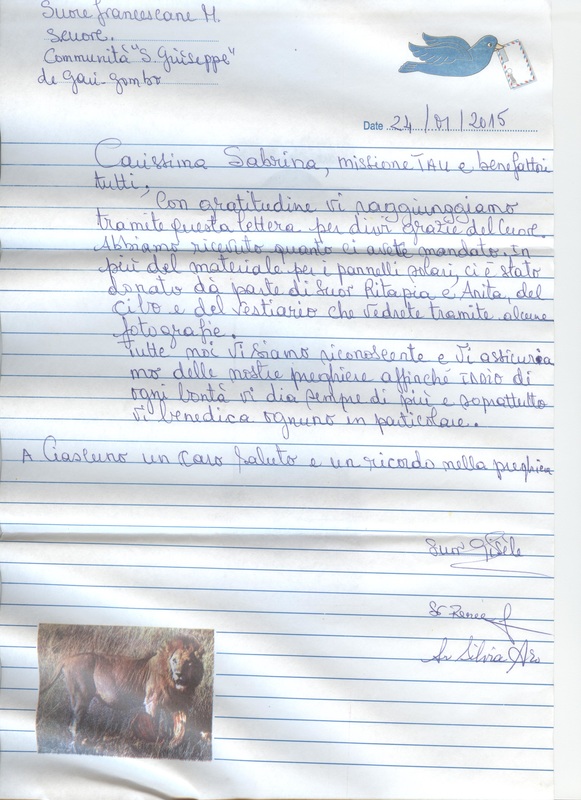 Suore Francescane M.
Communità "S. Giuseppe"
de Gari-gombo
Date 24/01/2015
Carissima Sabrina, missione TAU e benefattori
tutti,
Con gratitudine vi raggiungiamo
tramite questa lettera per dirvi grazie del cuore.
Abbiamo ricevuto quanto ci avete mandato. In
più del materiale per i pannelli solari, ci è stato
donato dà parte di Suor Ritapia e Anita, del
cibo e del vestiario che vedrete tramite alcune
fotografie.
Tutte noi vi siamo riconoscente e vi assicuria
mo delle nostre preghiere affinché IDDIO di
ogni bontà vi dia sempre di più e soprattutto
vi benedica ognuno in particolare.
A Ciascuno un caro saluto e un ricordo nella preghiera
Suor Gisèle
Sr Renée
Sr Silvia